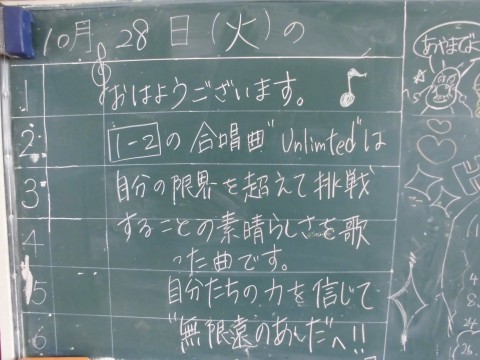 10月 28日(火)の
1 おはようございます。
2 1-2 の合唱曲"Unlimted"は
3 自分の限界を超えて挑戦
4 することの素晴らしさを歌
った曲です。
5 自分たちの力を信じて
6 "無限遠のあんだ"へ!!
あやまび